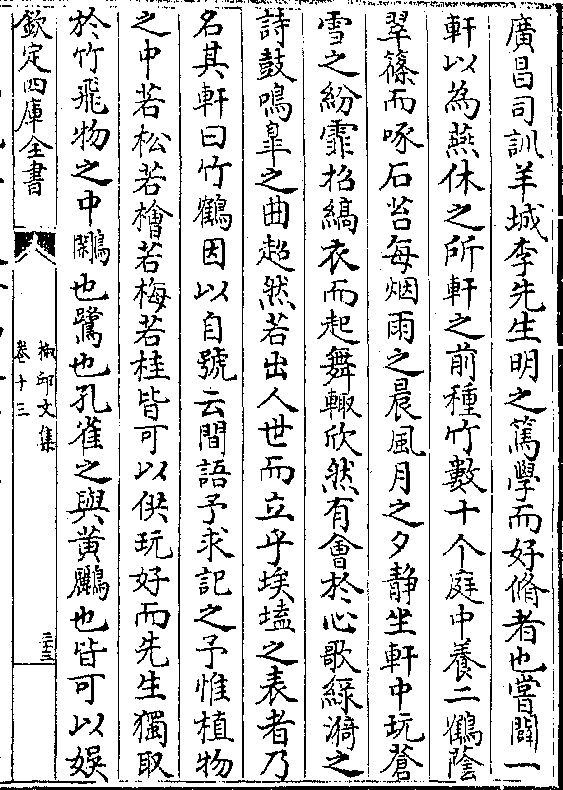 廣昌司訓羊城李先生明之篤學而好脩者也嘗闢一
軒以為燕休之所軒之前種竹數十个庭中養二鶴蔭
翠篠而啄石苔每烟雨之晨風月之夕静坐軒中玩蒼
雪之紛霏招縞衣而起舞輙欣然有會於心歌綠漪之
詩鼓鳴臯之曲超然若出人世而立乎埃壒之表者乃
名其軒曰竹鶴因以自號云間語予求記之予惟植物
之中若松若檜若梅若桂皆可以供玩好而先生獨取
於竹飛物之中鷴也鷺也孔雀之與黄鸝也皆可以娛
欽定四庫全書
椒邱文集
卷十三
三十三